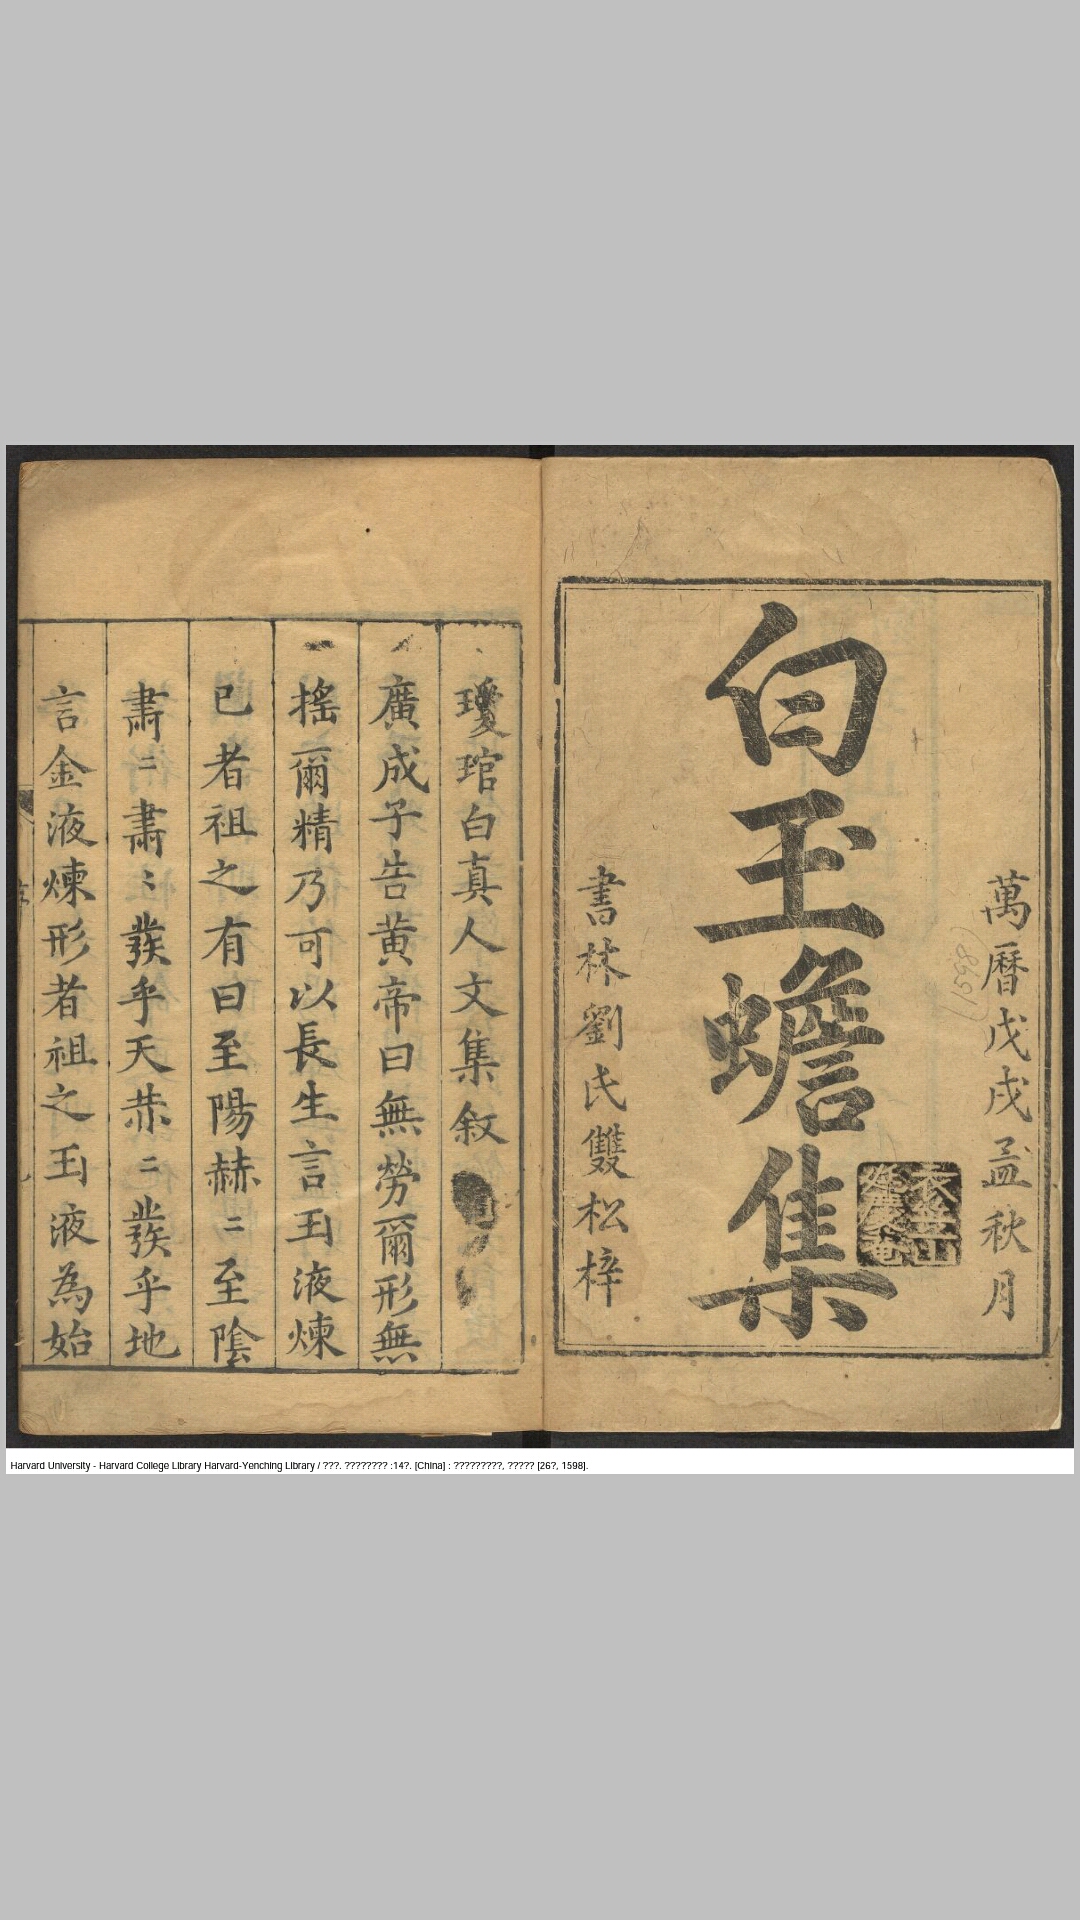 萬曆戊戌孟秋月
(1598)
白玉蟾集
書林劉氏雙松梓
瓊琯白真人文集敘
廣成子告黃帝曰無勞爾形無
搖爾精乃可以長生言玉液煉
已者祖之有曰至陽赫〻至陰
肅〻肅〻發乎天赫〻發乎地
言金液煉形者祖之玉液為始
Harvard University - Harvard College Library Harvard-Yenching Library / ???. ???????? :14?. [China] : ?????????, ????? [26?, 1598].